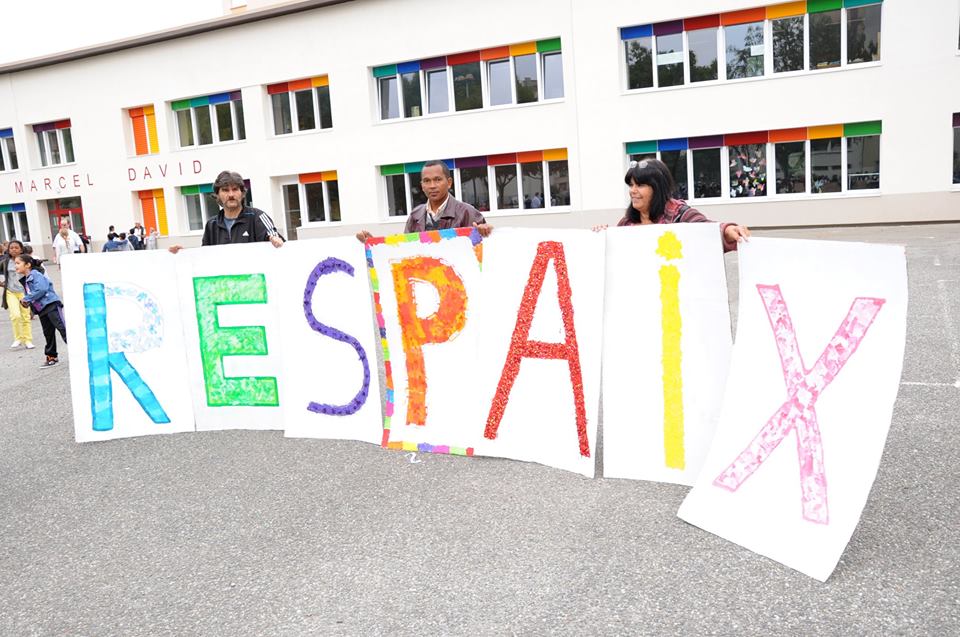 MARCEL DAVID
RESPAiX